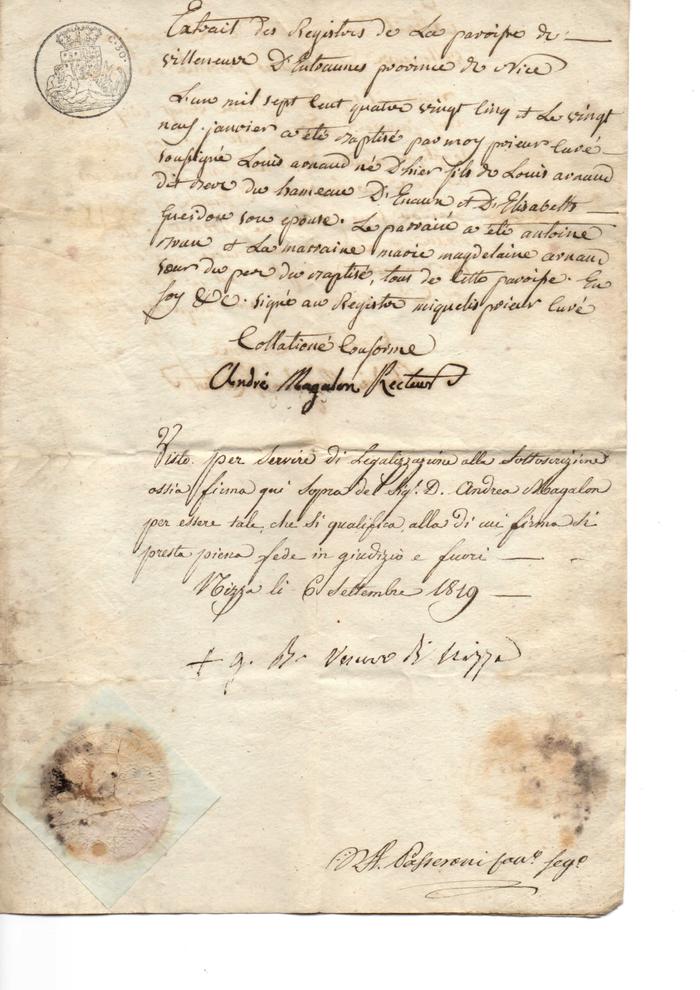 C. 50.
Extrait des Registres de La paroisse de
villeneuve D'Entraunes province de Nice
L'an mil sept cent quatre vingt cinq et Le vingt
neuf janvier a été baptisé par moy prieur curé
soussigné Louis arnaud né D'hier fils de Louis arnaud
dit du hameau D'Enaux et D'Elisabeth
Gueidon son epouse. Le parrain a été antoine
et La marraine marie magdelaine arnaud
sœur du pere du baptisé, tous de cette paroisse. En
foy &c. signé au Registre miquelis prieur curé
Collationé Conforme
André Magalon Recteur
Visto per servire di Legalizzazione alla sottoscrizione
ossia firma qui sopra del Sigr. D. Andrea Magalon
per essere tale, che si qualifica, alla di cui firma si
presta piena fede in giudizio e fuori —
Nizza li 6 Settembre 1819 —
+ Vescovo di Nizza
Passeroni segro